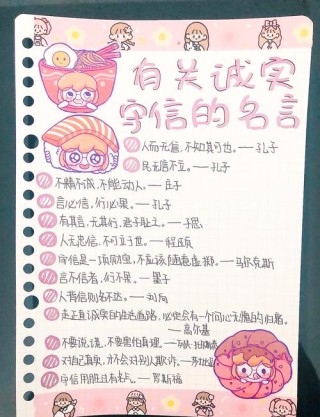 有关诚实
守信的名言
人而无信,不知其可也。——孔子
民无信不立。——孔子
不精不诚,不能动人。——庄子
言必信,行必果。——孔子
有其言,无其行,君子耻之。——子思
人无忠信,不可立于世。——程颐
守信是一项财宝,不应该随意虚掷。——马尔克斯
言不信者,行不果。——墨子
人背信则名不达。——刘向
走正直诚实的生活道路,必定会有一个问心无愧的归宿。
——高尔基
不要说谎,不要害怕真理。——列夫·托尔斯泰
对自己真实,才不会对别人欺诈。——莎士比亚
守信用胜过有名气。——罗斯福